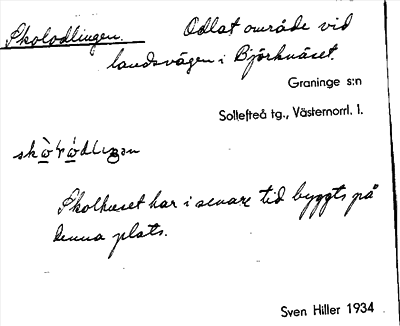 Skolodlingen. Odlat område vid
landsvägen i Björknäset.
Graninge s:n
Sollefteå tg., Västernorrl. l.
Skolhuset har i senare tid byggts på
denna plats.
Sven Hiller 1934